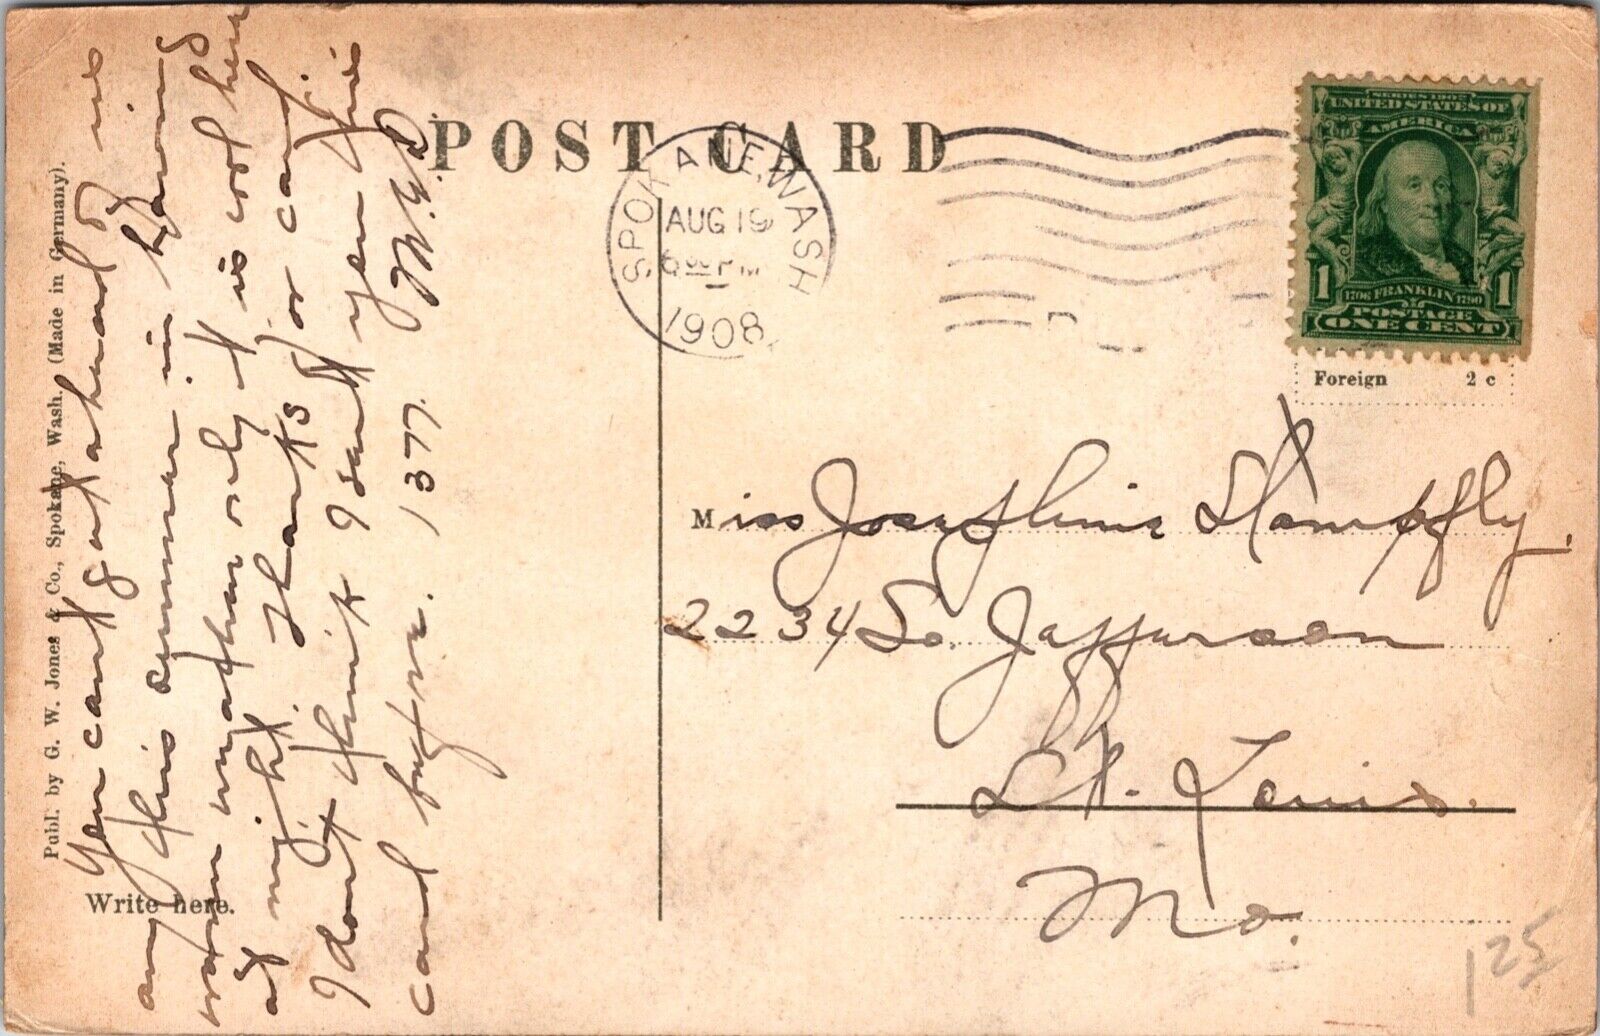 POST CARD
SPOKANE, WASH.
AUG 19
6 00 PM
1908
SERIES 1902
UNITED STATES OF
AMERICA
1706 FRANKLIN 1790
1 1
POSTAGE
ONE CENT
Foreign 2 c
Miss Josephine Stampfly.
2234 So. Jefferson
St. Louis.
Mo.
125
Publ. by G. W. Jones & Co., Spokane, Wash. (Made in Germany).
Write here.
You cant get ahead of us
any this summer in having
warm weather only it is cool here
at night. Thanks for card.
I dont think I sent you this
card before. 1377. M.G.D.